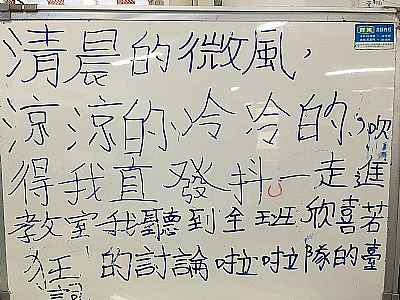 清晨的微風，
涼涼的冷冷的，吹
得我直發抖。一走進
教室我聽到全班欣喜若
狂的討論啦啦隊的臺
詞